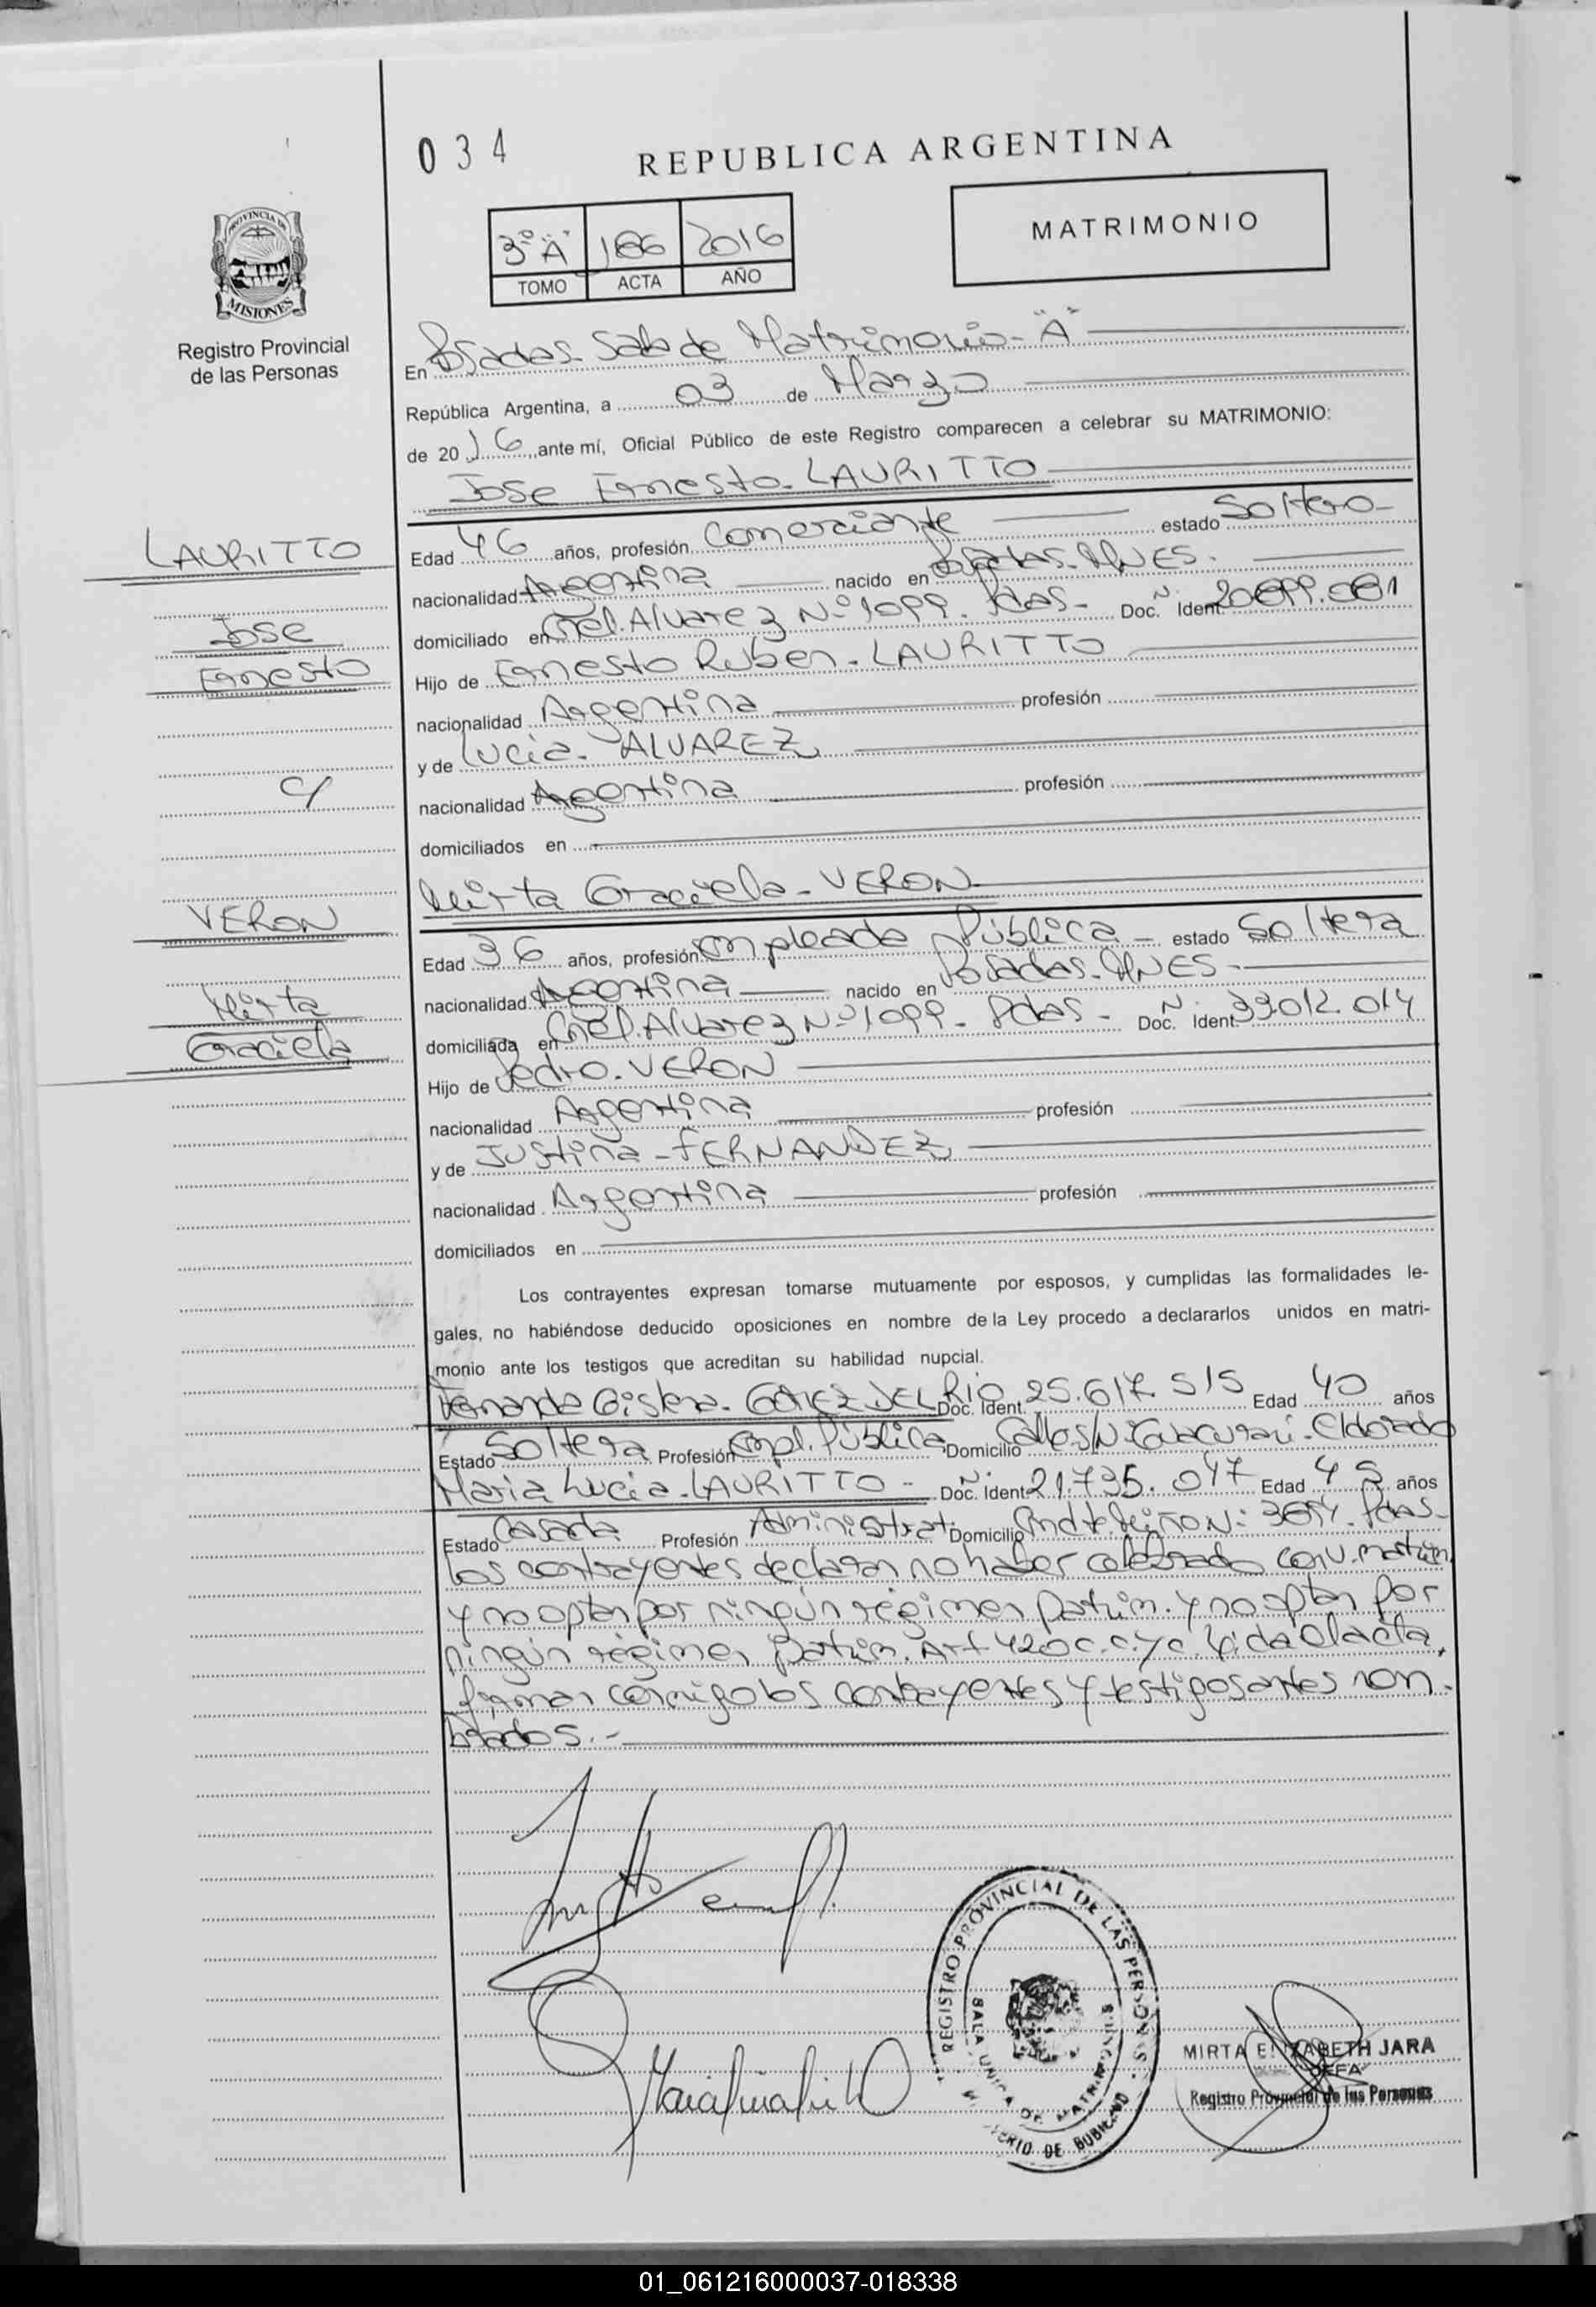 034
REPUBLICA ARGENTINA
3º "A" 186 2016
TOMO ACTA AÑO
MATRIMONIO
PROVINCIA DE
MISIONES
Registro Provincial
de las Personas
En Posadas Sala de Matrimonio - "A"
República Argentina, a 03 de Marzo
de 20 16 ante mí, Oficial Público de este Registro comparecen a celebrar su MATRIMONIO:
Jose Ernesto - LAURITTO
LAURITTO
Jose
Ernesto
c/
VERON
Mirta
Graciela
Edad 46 años, profesión Comerciante estado Soltero
nacionalidad Argentina nacido en Posadas - Mnes.
domiciliado en Cnel. Alvarez Nº 1099 - Pdas - Doc. Ident. 20.899.081
Hijo de Ernesto Ruben - LAURITTO
nacionalidad Argentina profesión
y de Lucia - ALVAREZ
nacionalidad Argentina profesión
domiciliados en
Mirta Graciela - VERON
Edad 36 años, profesión empleada Pública - estado Soltera
nacionalidad Argentina nacido en Posadas - MNES -
domiciliada en Cnel. Alvarez Nº 1099 - Pdas - Doc. Ident. 33.012.014
Hijo de Pedro - VERON
nacionalidad Argentina profesión
y de Justina - FERNANDEZ
nacionalidad Argentina profesión
domiciliados en
Los contrayentes expresan tomarse mutuamente por esposos, y cumplidas las formalidades le-
gales, no habiéndose deducido oposiciones en nombre de la Ley procedo a declararlos unidos en matri-
monio ante los testigos que acreditan su habilidad nupcial.
Fernanda Gislena - GOMEZ DEL RIO Doc. Ident. 25.617.515 Edad 40 años
Estado Soltera Profesión Empl. Pública Domicilio Calle S/N Guacurari - Eldorado
Maria Lucia - LAURITTO - Doc. Ident. 21.735.047 Edad 45 años
Estado Casada Profesión Administrat. Domicilio Nº: 3654 - Pdas -
Los contrayentes declaran no haber celebrado conv. matrim.
y no optan por ningún régimen patrim. y no optan por
ningún régimen patrim. Art 420 C.C. y C. Leida el acta,
firman conmigo los contrayentes y testigos antes nom-
brados. -
REGISTRO PROVINCIAL DE LAS PERSONAS
SALA UNICA DE MATRIMONIOS
MINISTERIO DE GOBIERNO
MIRTA ELIZABETH JARA
JEFA
Registro Provincial de las Personas
01_061216000037-018338